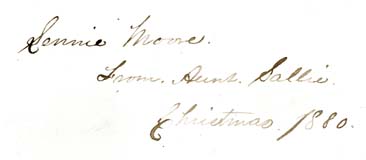 Lennie Moore.
From. Aunt. Sallie.
Christmas. 1880.